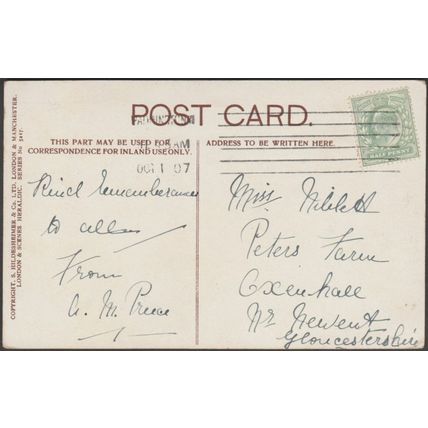 POST CARD.
PADDINGTON
AM
OCT 1 07
THIS PART MAY BE USED FOR
CORRESPONDENCE FOR INLAND USE ONLY.
ADDRESS TO BE WRITTEN HERE.
COPYRIGHT, S. HILDESHEIMER & CO. LTD. LONDON & MANCHESTER.
LONDON & SCENES HERALDIC. SERIES No 5417.
Kind Remembrances
to all
From
A. M. Price
Miss
Peters Farm
Oxenhall
Nr Newent
Gloucestershire